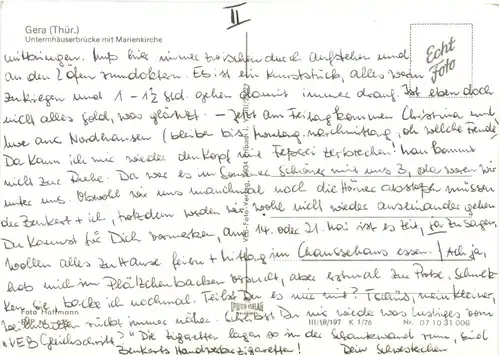 II
Gera (Thür.)
Untermhäuserbrücke mit Marienkirche
Echt
Foto
mitbringen. Muß hier immer zwischendurch aufstehen und
an den 2 Öfen rumdoktern. Es ist ein Kunststück, alles warm
zukriegen und 1 - 1½ Std. gehen damit immer drauf. Ist eben doch
nicht alles Gold, was glänzt. - Jetzt am Freitag kommen Christina und
Uwe aus Nordhausen (bleiben bis Montag nachmittag, oh welche Freude)
Da kann ich mir wieder den Kopf mit zerbrechen! man kommt
nicht zur Ruhe. Da war es im Sommer schöner mit uns 3, da waren wir
unter uns. Obwohl wir uns manchmal noch die Hörner abstoßen müssen
der Zenkert + ich, trotzdem werden wir wohl nicht wieder auseinander gehen
Du kannst für Dich vormerken, am 14. oder 21. Mai ist es Zeit, ja zu sagen,
wollen alles zu Hause feiern + mittag im Chausseehaus essen! Ach ja,
hab mich im Plätzchenbacken versucht, aber erstmal zur Probe. Schmek-
ken sie, backe ich nochmal. Teilst Du es mir mit? Tschüs, mein Kleiner,
rückt immer näher schreibst Du mir wieder was lustiges vom
"VEB Gleichschritt?" Die Zigaretten lagen so in der Schankwand rum, sind
Zenkerts Handwerkszigaretten! Dein Schwesterchen
Foto Hoffmann
III/18/197 K 1/76
Nr. 07 10 31 006
VEB Foto-Verlag